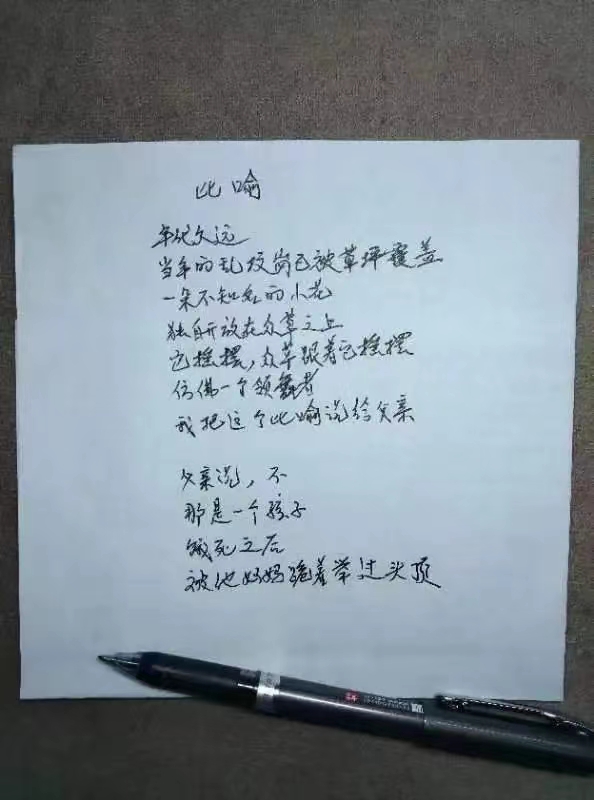 比喻
年代久远
当年的乱坟岗已被草坪覆盖
一朵不知名的小花
独自开放在众草之上
它摇摆,众草跟着它摇摆
仿佛一个领舞者
我把这个比喻说给父亲
父亲说,不
那是一个孩子
饿死之后
被他妈妈跪着举过头顶